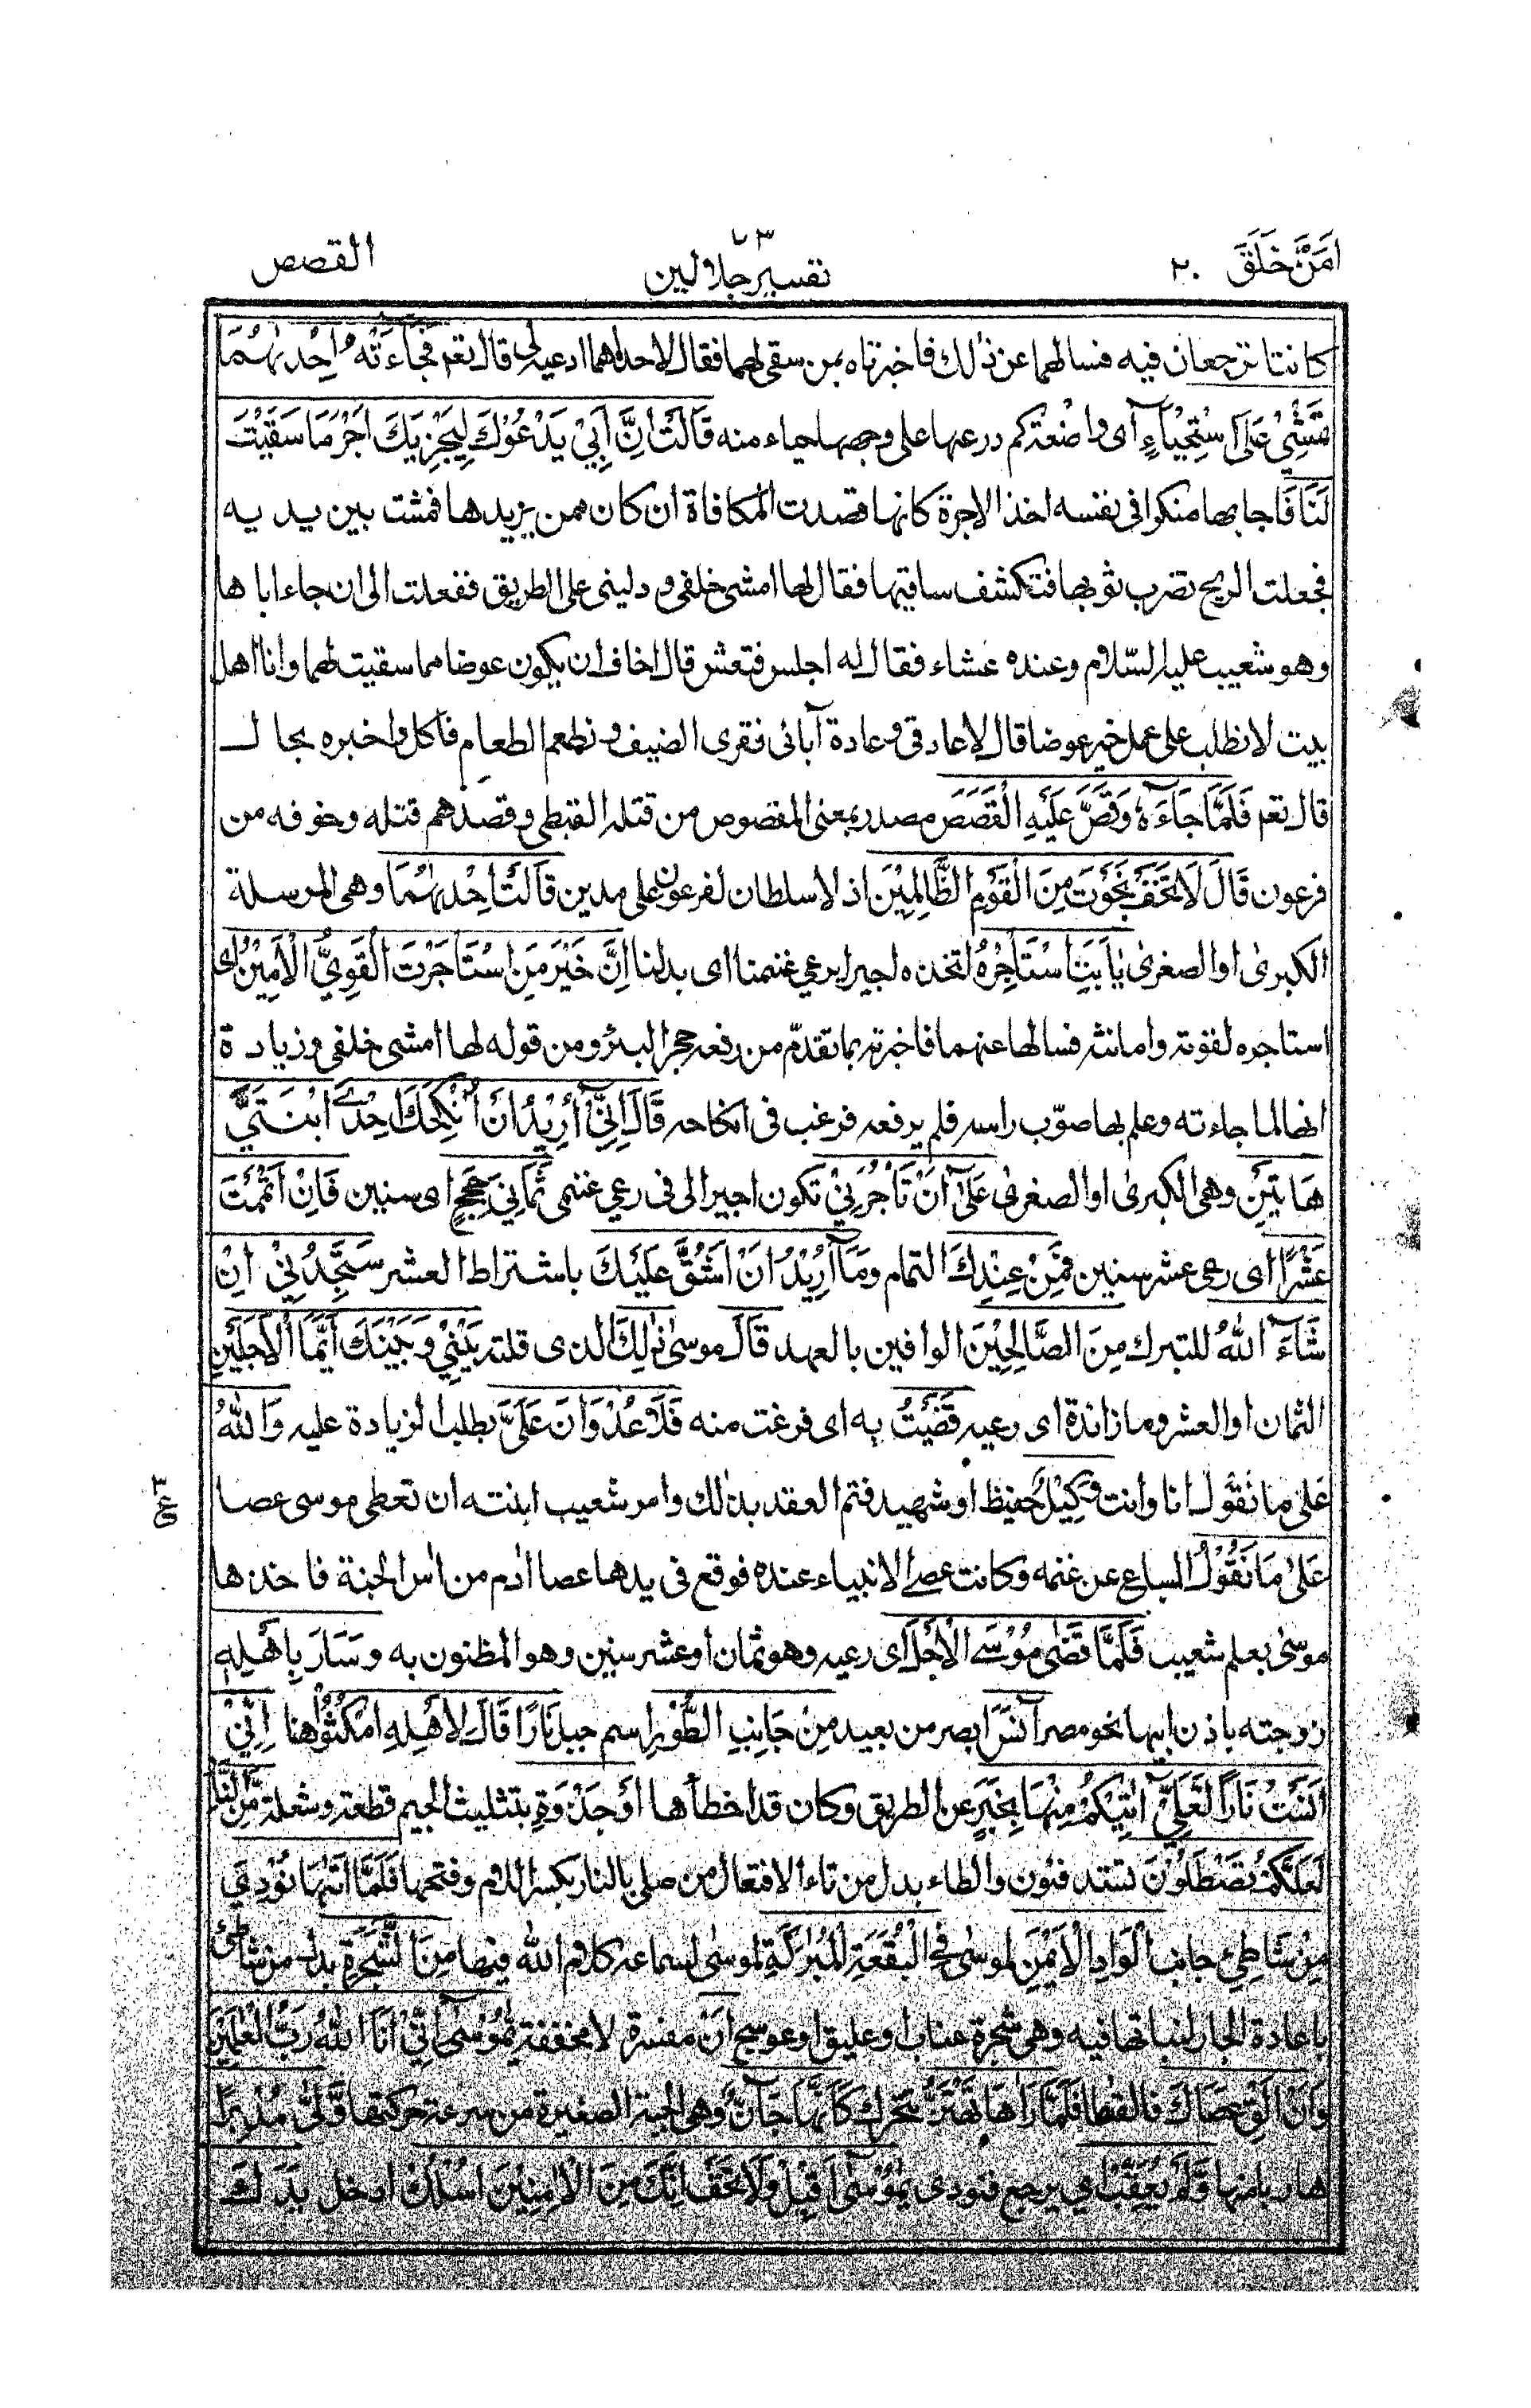 امن خلق ٢٠
تفسير جلالين
القصص
كانتا ترجعان فيه فسالهما عن ذلك فاخبرتاه بمن سقى لهما فقال لاحداهما ادعيه لى قال نعم فَجَآءَتْهُ اِحْدٰىهُمَا
تَمْشِىْ عَلَى اسْتِحْيَآءٍ اى واضعة كم درعها على وجهها حياء منه قَالَتْ اِنَّ اَبِيْ يَدْعُوْكَ لِيَجْزِيَكَ اَجْرَ مَا سَقَيْتَ
لَنَا فاجابها منكرا فى نفسه اخذ الاجرة كانها قصدت المكافاة ان كان ممن يريدها فمشت بين يديه
فجعلت الريح تضرب ثوبها فتكشف ساقيها فقال لها امشى خلفى ودلينى على الطريق ففعلت الى ان جاء اباها
وهو شعيب عليه السّلام وعنده عشاء فقال له اجلس فتعش قال اخاف ان يكون عوضا مما سقيت لهما وانا اهل
بيت لا نطلب على عمل خير عوضا قال لا عادتى وعادة آبائى نقرى الضيف ونطعم الطعام فاكل واخبره بحالـ
قال نعم فَلَمَّا جَآءَهٗ وَقَصَّ عَلَيْهِ الْقَصَصَ مصدر بمعنى المقصوص من قتله القبطى وقصدهم قتله وخوفه من
فرعون قَالَ لَا تَخَفْ نَجَوْتَ مِنَ الْقَوْمِ الظّٰلِمِيْنَ اذ لا سلطان لفرعون على مدين قَالَتْ اِحْدٰىهُمَا وهى المرسلة
الكبرىٰ او الصغرىٰ يٰٓاَبَتِ اسْتَأْجِرْهُ اتخذه اجيرا يرعى غنمنا اى بدلنا اِنَّ خَيْرَ مَنِ اسْتَأْجَرْتَ الْقَوِيُّ الْاَمِيْنُ اى
استاجره لقوته وامانته فسالها عنهما فاخبرته بما تقدّم من رفعه حجر البئر ومن قوله لها امشى خلفى وزيادة
انها لما جاءته وعلم بها صوّب راسه فلم يرفعه فرغب فى انكاحه قَالَ اِنِّيْٓ اُرِيْدُ اَنْ اُنْكِحَكَ اِحْدَى ابْنَتَيَّ
هَاتَيْنِ وهى الكبرىٰ او الصغرىٰ عَلٰٓى اَنْ تَأْجُرَنِيْ تكون اجيرا لى فى رعى غنمى ثَمَانِيَ حِجَجٍ اى سنين فَاِنْ اَتْمَمْتَ
عَشْرًا اى رعى عشر سنين فَمِنْ عِنْدِكَ التمام وَمَآ اُرِيْدُ اَنْ اَشُقَّ عَلَيْكَ باشتراط العشر سَتَجِدُنِيْٓ اِنْ
شَآءَ اللّٰهُ للتبرك مِنَ الصّٰلِحِيْنَ الوافين بالعهد قَالَ موسىٰ ذٰلِكَ الذى قلته بَيْنِيْ وَبَيْنَكَ اَيَّمَا الْاَجَلَيْنِ
الثمان او العشر وما زائدة اى رعيه قَضَيْتُ به اى فرغت منه فَلَا عُدْوَانَ عَلَيَّ بطلب الزيادة عليه وَاللّٰهُ
عَلٰى ما نقول انا وانت وَكِيْلٌ حفيظ او شهيد فتم العقد بذلك وامر شعيب ابنته ان تعطى موسى عصا
عَلٰى مَا نَقُوْلُ السباع عن غنمه وكانت عصى الانبياء عنده فوقع فى يدها عصا اٰدم من اٰس الجنة فاخذها
موسىٰ بعلم شعيب فَلَمَّا قَضٰى مُوْسَى الْاَجَلَ اى رعيه وهو ثمان او عشر سنين وهو المظنون به وَسَارَ بِاَهْلِهٖٓ
زوجته باذن ابيها نحو مصر اٰنَسَ ابصر من بعيد مِنْ جَانِبِ الطُّوْرِ اسم جبل نَارًا قَالَ لِاَهْلِهِ امْكُثُوْٓا هنا اِنِّيْٓ
اٰنَسْتُ نَارًا لَّعَلِّيْٓ اٰتِيْكُمْ مِّنْهَا بِخَبَرٍ عن الطريق وكان قد اخطأها اَوْ جَذْوَةٍ بتثليث الجيم قطعة وشعلة مِّنَ النَّارِ
لَعَلَّكُمْ تَصْطَلُوْنَ تستدفئون والطاء بدل من تاء الافتعال من صلى بالنار بكسر اللام وفتحها فَلَمَّآ اَتٰىهَا نُوْدِيَ
مِنْ شَاطِئِ جانب الْوَادِ الْاَيْمَنِ لموسىٰ فِى الْبُقْعَةِ الْمُبٰرَكَةِ لموسىٰ لسماعه كلام الله فيها مِنَ الشَّجَرَةِ بدل من شاطئ
باعادة الجار لنباتها فيه وهى شجرة عناب او عليق او عوسج اَنْ مفسرة لا مخففة يّٰمُوْسٰٓى اِنِّيْٓ اَنَا اللّٰهُ رَبُّ الْعٰلَمِيْنَ
وَاَنْ اَلْقِ عَصَاكَ فالقٰها فَلَمَّا رَاٰهَا تَهْتَزُّ تتحرك كَاَنَّهَا جَآنٌّ وهى الحية الصغيرة من سرعة حركتها وَّلّٰى مُدْبِرًا
هاربا منها وَّلَمْ يُعَقِّبْ اى يرجع فنودى يٰمُوْسٰٓى اَقْبِلْ وَلَا تَخَفْ اِنَّكَ مِنَ الْاٰمِنِيْنَ اُسْلُكْ ادخل يَدَكَ